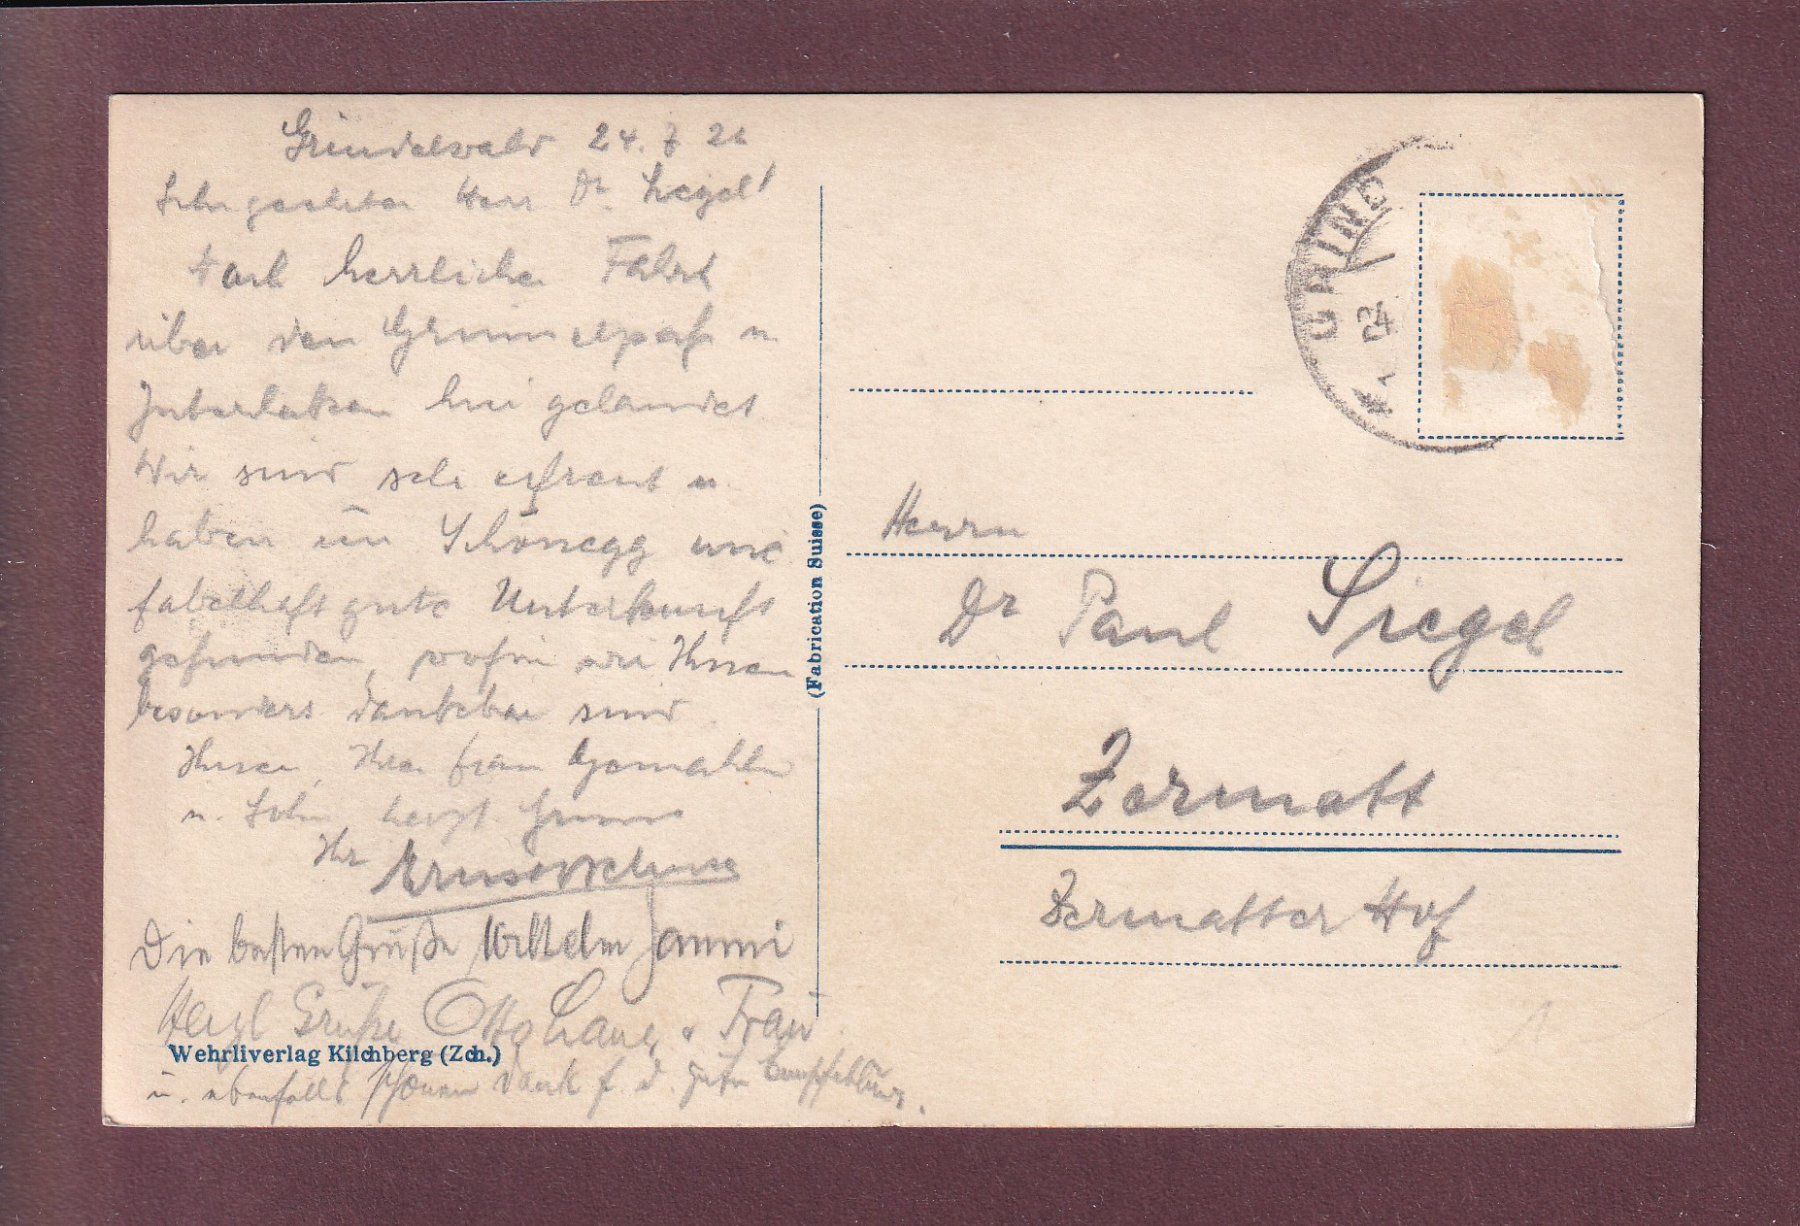 Grindelwald 24. 7 26
Sehr geehrter Herr Dr. Siegel!
Nach herrlicher Fahrt
über den Grimselpass u
Interlaken hier gelandet
Wir sind sehr erfreut u
haben im Schönegg eine
fabelhaft gute Unterkunft
gefunden, wofür wir Ihnen
besonders dankbar sind.
Ihnen, Ihrer frau Gemahlin
u. Sohn herzl. Grüsse
Ihr
Die besten Grüße Wilhelm
Herzl Grüße Otto u Frau
u. ebenfalls schönen Dank f. d. gute Empfehlung.
Wehrliverlag Kilchberg (Zch.)
(Fabrication Suisse)
GRIND
24
Herrn
Dr Paul Siegel
Zermatt
Zermatter Hof